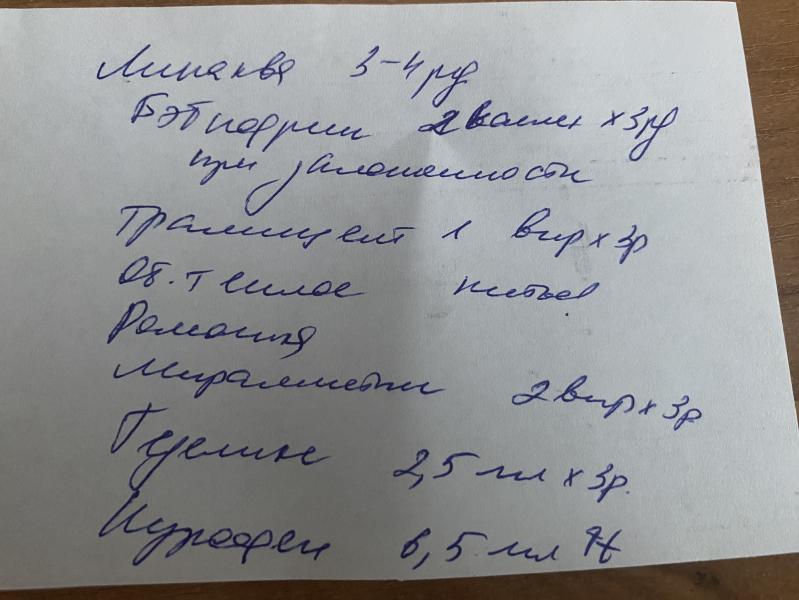 Линаква 3-4 рд
2 капли х 3рд
при заложенности
Грамицент 1 впр х 3р
Об. теплое питье
Ромашка
Мирамистин 2 впр х 3р
Геделикс 2,5 мл х 3р.
Нурофен 6,5 мл